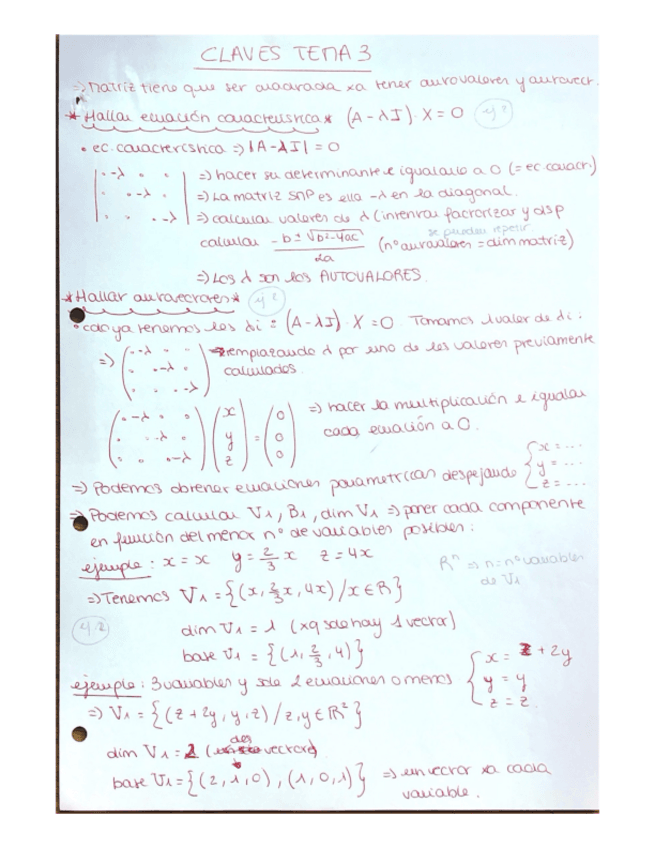 CLAVES TEMA 3
=> Matriz tiene que ser cuadrada xa tener autovalores y autovect.
* Hallar ecuación característica * (A - λI) · X = 0 ej 1
• ec. característica => |A - λI| = 0
| · -λ · · | => hacer su determinante e igualarlo a 0 (= ec caract)
| · · -λ · | => La matriz SNP es ella -λ en la diagonal.
| · · · -λ | => calcular valores de λ (intentar factorizar y dsp
se pueden repetir
calcular -b ± √b²-4ac / 2a (nº autovalores = dim matriz)
=> Los λ son los AUTOVALORES.
* Hallar autovectores * ej 2
• cdo ya tenemos los λi : (A - λI) · X = 0. Tomamos 1 valor de λi :
=> ( · -λ · · ) reemplazando λ por uno de los valores previamente
( · · -λ · ) calculados
( · · · -λ )
( · -λ · · ) ( x ) ( 0 ) => hacer la multiplicación e igualar
( · · -λ · ) ( y ) = ( 0 ) cada ecuación a 0.
( · · · -λ ) ( z ) ( 0 )
=> Podemos obtener ecuaciones paramétricas despejando { x = ... y = ... z = ...
=> Podemos calcular V1, B1, dim V1 => poner cada componente
en función del menor nº de variables posibles :
ejemplo : x = x y = 2/3 x z = 4x
Rⁿ => n = nº variables
de V1
=> Tenemos V1 = {(x, 2/3x, 4x) / x ∈ R}
ej. 2
dim V1 = 1 (xq solo hay 1 vector)
base V1 = {(1, 2/3, 4)}
ejemplo : 3 variables y solo 2 ecuaciones o menos { x = z + 2y
y = y
z = z
=> V1 = {(z + 2y, y, z) / z, y ∈ R²}
dos
dim V1 = 2 ( vectores)
base V1 = {(2, 1, 0), (1, 0, 1)} => un vector xa cada
variable.